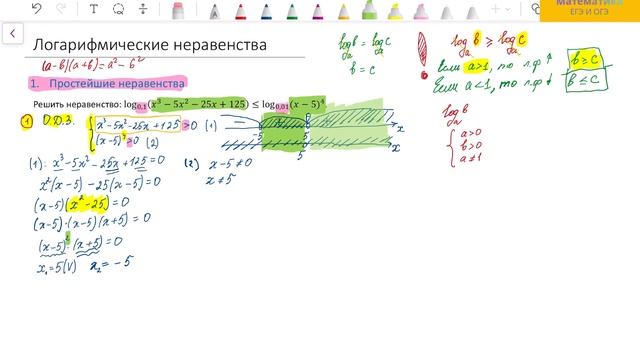 Математика
ЕГЭ И ОГЭ
Логарифмические неравенства
(a-b)(a+b)=a²-b²
1. Простейшие неравенства
Решить неравенство: log₀,₁(x³ − 5x² − 25x + 125) ≤ log₀,₀₁(x − 5)⁴
① О.D.З. { x³-5x²-25x+125>0 (1)
(x-5)⁴>0 (2)
-5 5 x
5 x
(1): x³-5x²-25x+125=0
x²(x-5)-25(x-5)=0
(x-5)(x²-25)=0
(x-5)·(x-5)(x+5)=0
(x-5)²·(x+5)=0
x₁=5(V) x₂=-5
(2) x-5≠0
x≠5
logₐb = logₐc
b = c
logₐb ≥ logₐc
Если a>1, то л.ф ↑ b≥c
Если a<1, то л.ф ↓ b≤c
logₐb
{ a>0
b>0
a≠1